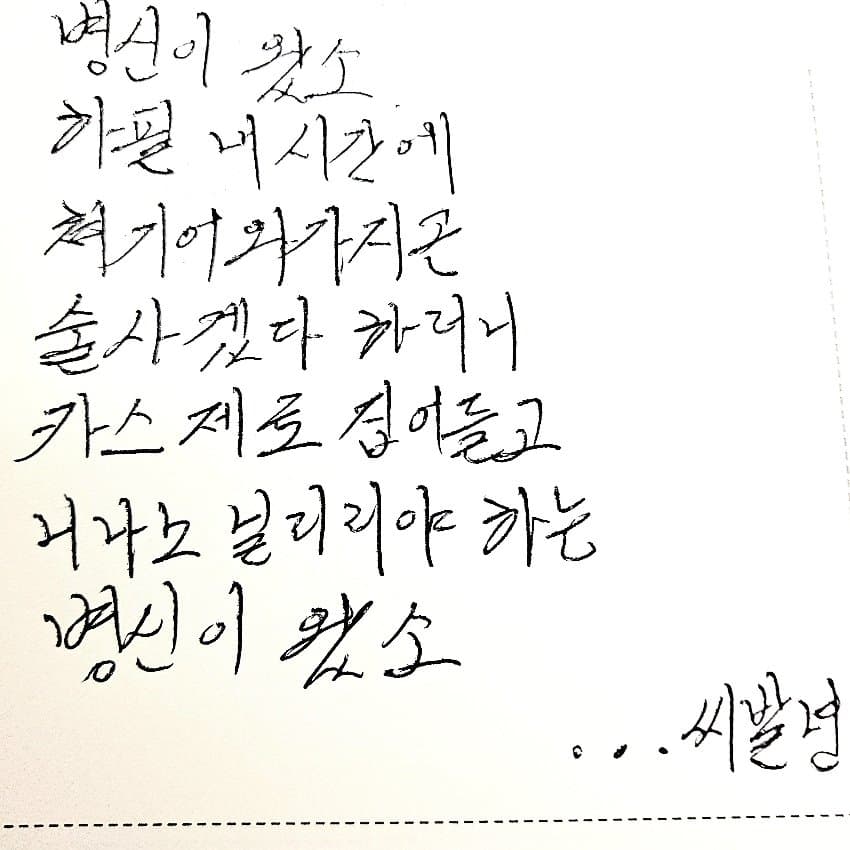 병신이 왔소
하필 내 시간에
쳐기어와가지곤
술사겠다 하더니
카스 제로 집어들고
니나노 닐리리야 하는
병신이 왔소
...씨발년